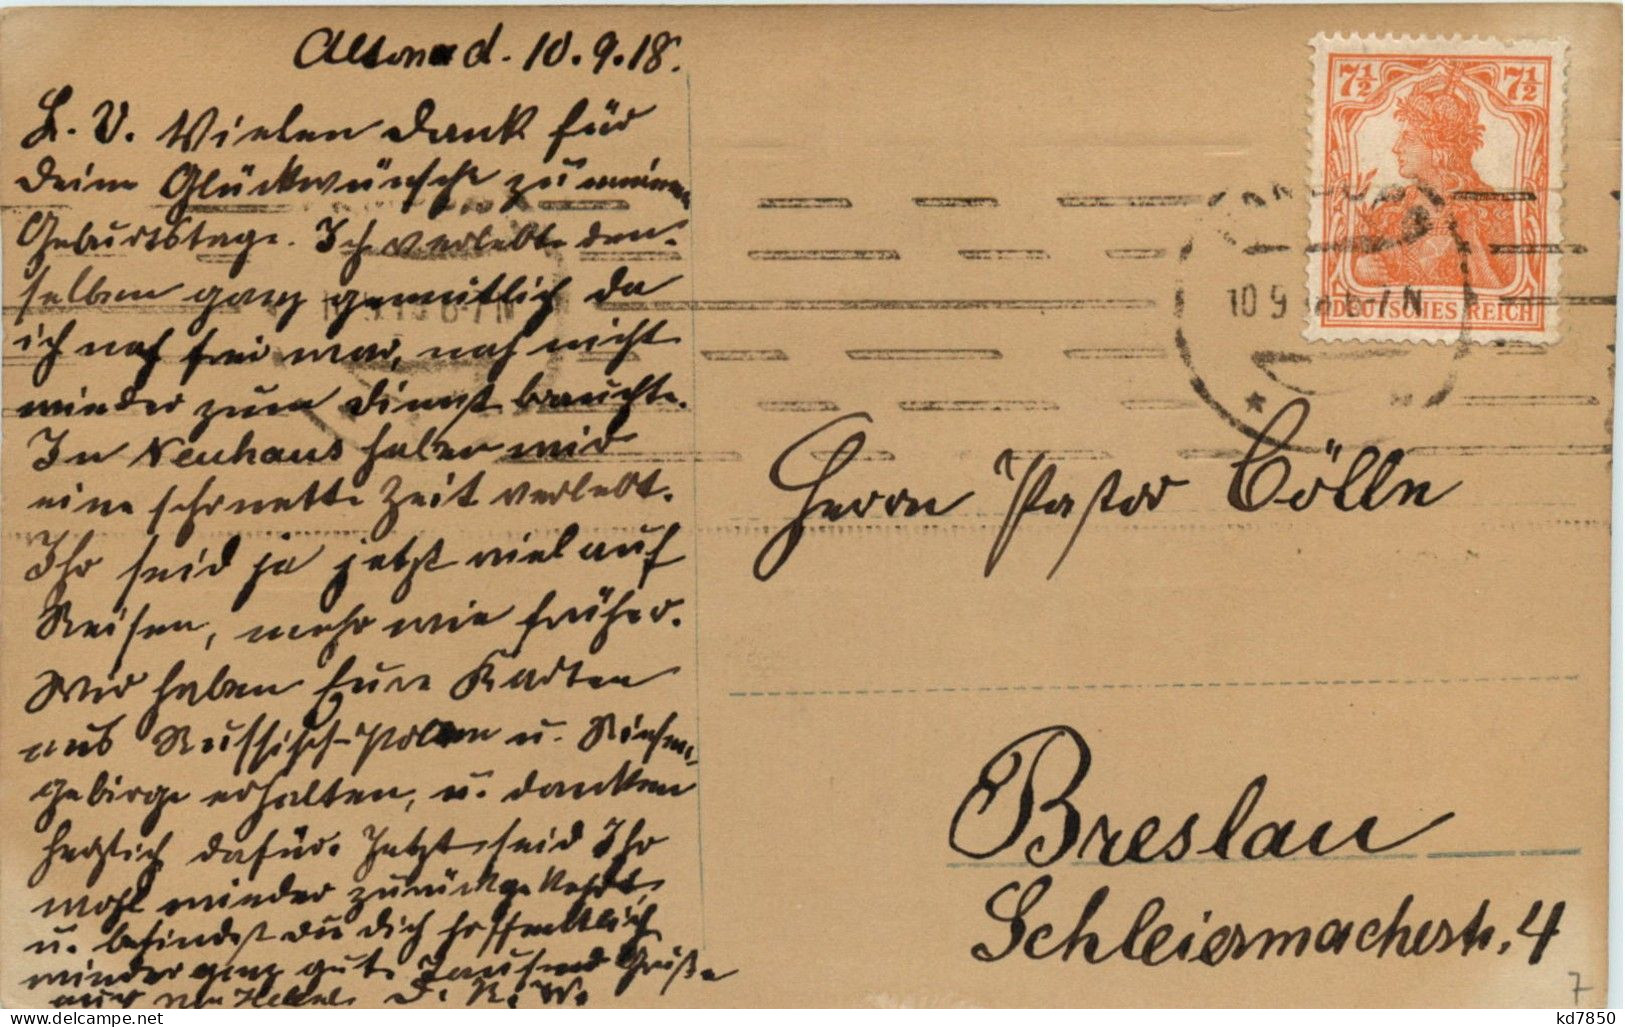 Altona d. 10.9.18.
L. V. Vielen Dank für
Deine Glückwünsche zu meinem
Geburtstage. Ich verlebte den-
selben ganz gemütlich da
ich noch frei war, noch nicht
wieder zum Dienst brauchte.
In Neuhaus haben wir
eine sehr nette Zeit verlebt.
Ihr seid ja jetzt viel auf
Reisen, mehr wie früher.
Wir haben Eure Karten
aus Russisch-Polen u. Riesen-
gebirge erhalten, u. danken
herzlich dafür. Jetzt seid Ihr
wohl wieder zurückgekehrt,
u. befindest du dich hoffentlich
wieder ganz gut. Tausend Grüße
D. R. W.
7½ 7½
DEUTSCHES REICH
10 9 18 6-7 N
Herrn Pastor Cölln
Breslau
Schleiermacherstr. 4
7
kd7850